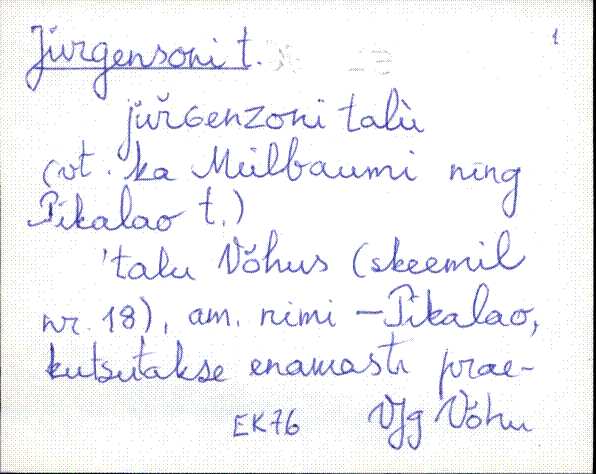 Jürgensoni t. 1
jürGenzoni talù
(vt. ka Mülbaumi ning
Pikalao t.)
'talu Võhus (skeemil
nr. 18), am. nimi – Pikalao,
kutsutakse enamasti prae-
EK76 VJg Võhu